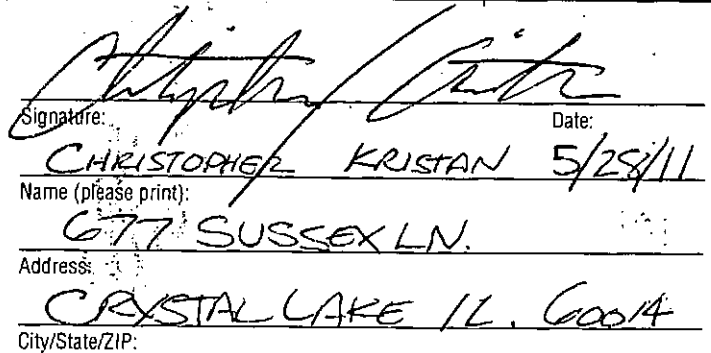 Signature: Date:
CHRISTOPHER KRISTAN 5/28/11
Name (please print):
677 SUSSEX LN.
Address:
CRYSTAL LAKE IL. 60014
City/State/ZIP: